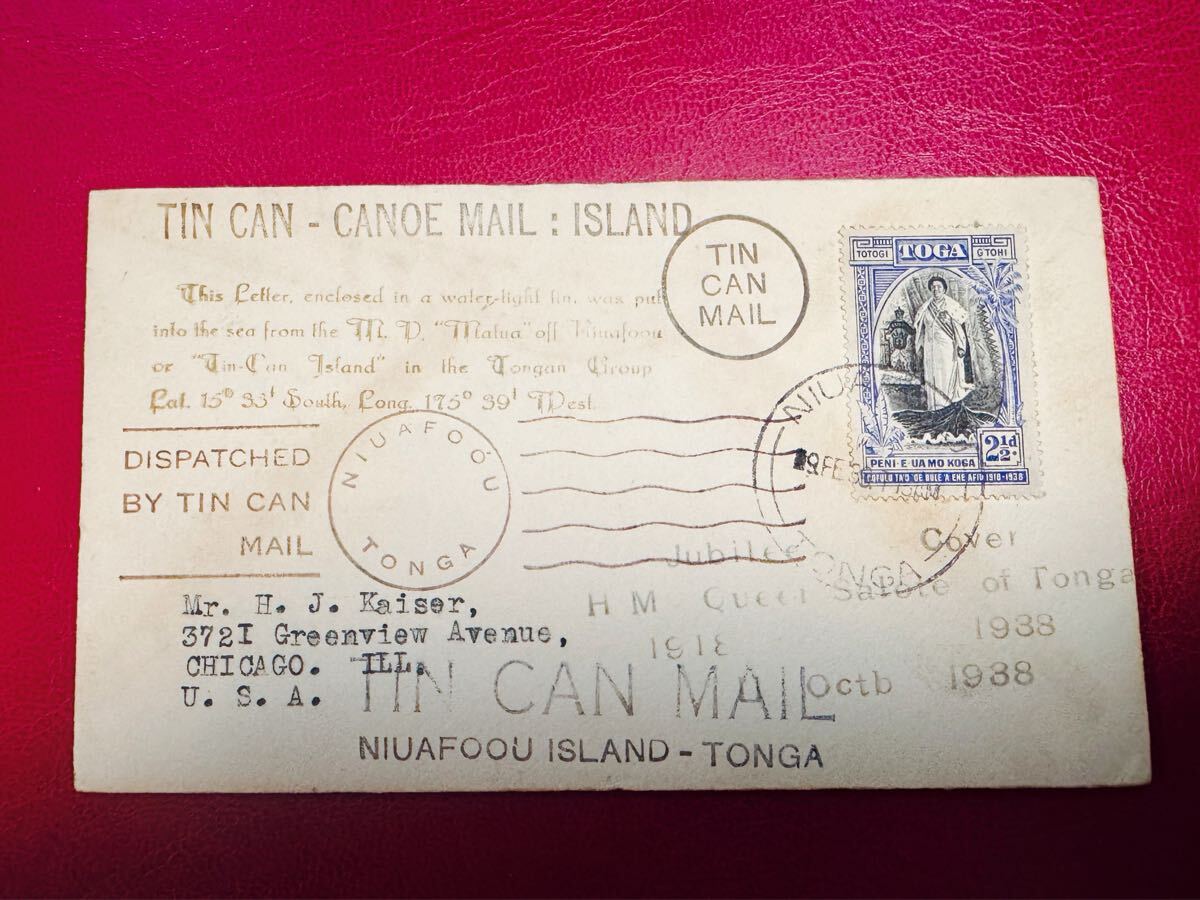 TIN CAN - CANOE MAIL : ISLAND
TIN
CAN
MAIL
This Letter, enclosed in a water-tight tin, was put
into the sea from the M. V. "Matua" off Niuafoou
or "Tin-Can Island" in the Tongan Group
Lat. 15° 33' South, Long. 175° 39' West.
TOTOGI TOGA G TOHI
2½d.
PENI·E·UA MO KOGA
TA'U 'OE 'ENE AFIO 1918-1938
DISPATCHED
BY TIN CAN
MAIL
NIUAFOOU
TONGA
NIUA
TONGA
Jubilee Cover
H M Queen Salote of Tonga
1918 1938
Octb 1938
Mr. H. J. Kaiser,
372I Greenview Avenue,
CHICAGO. ILL.
U. S. A.
TIN CAN MAIL
NIUAFOOU ISLAND - TONGA